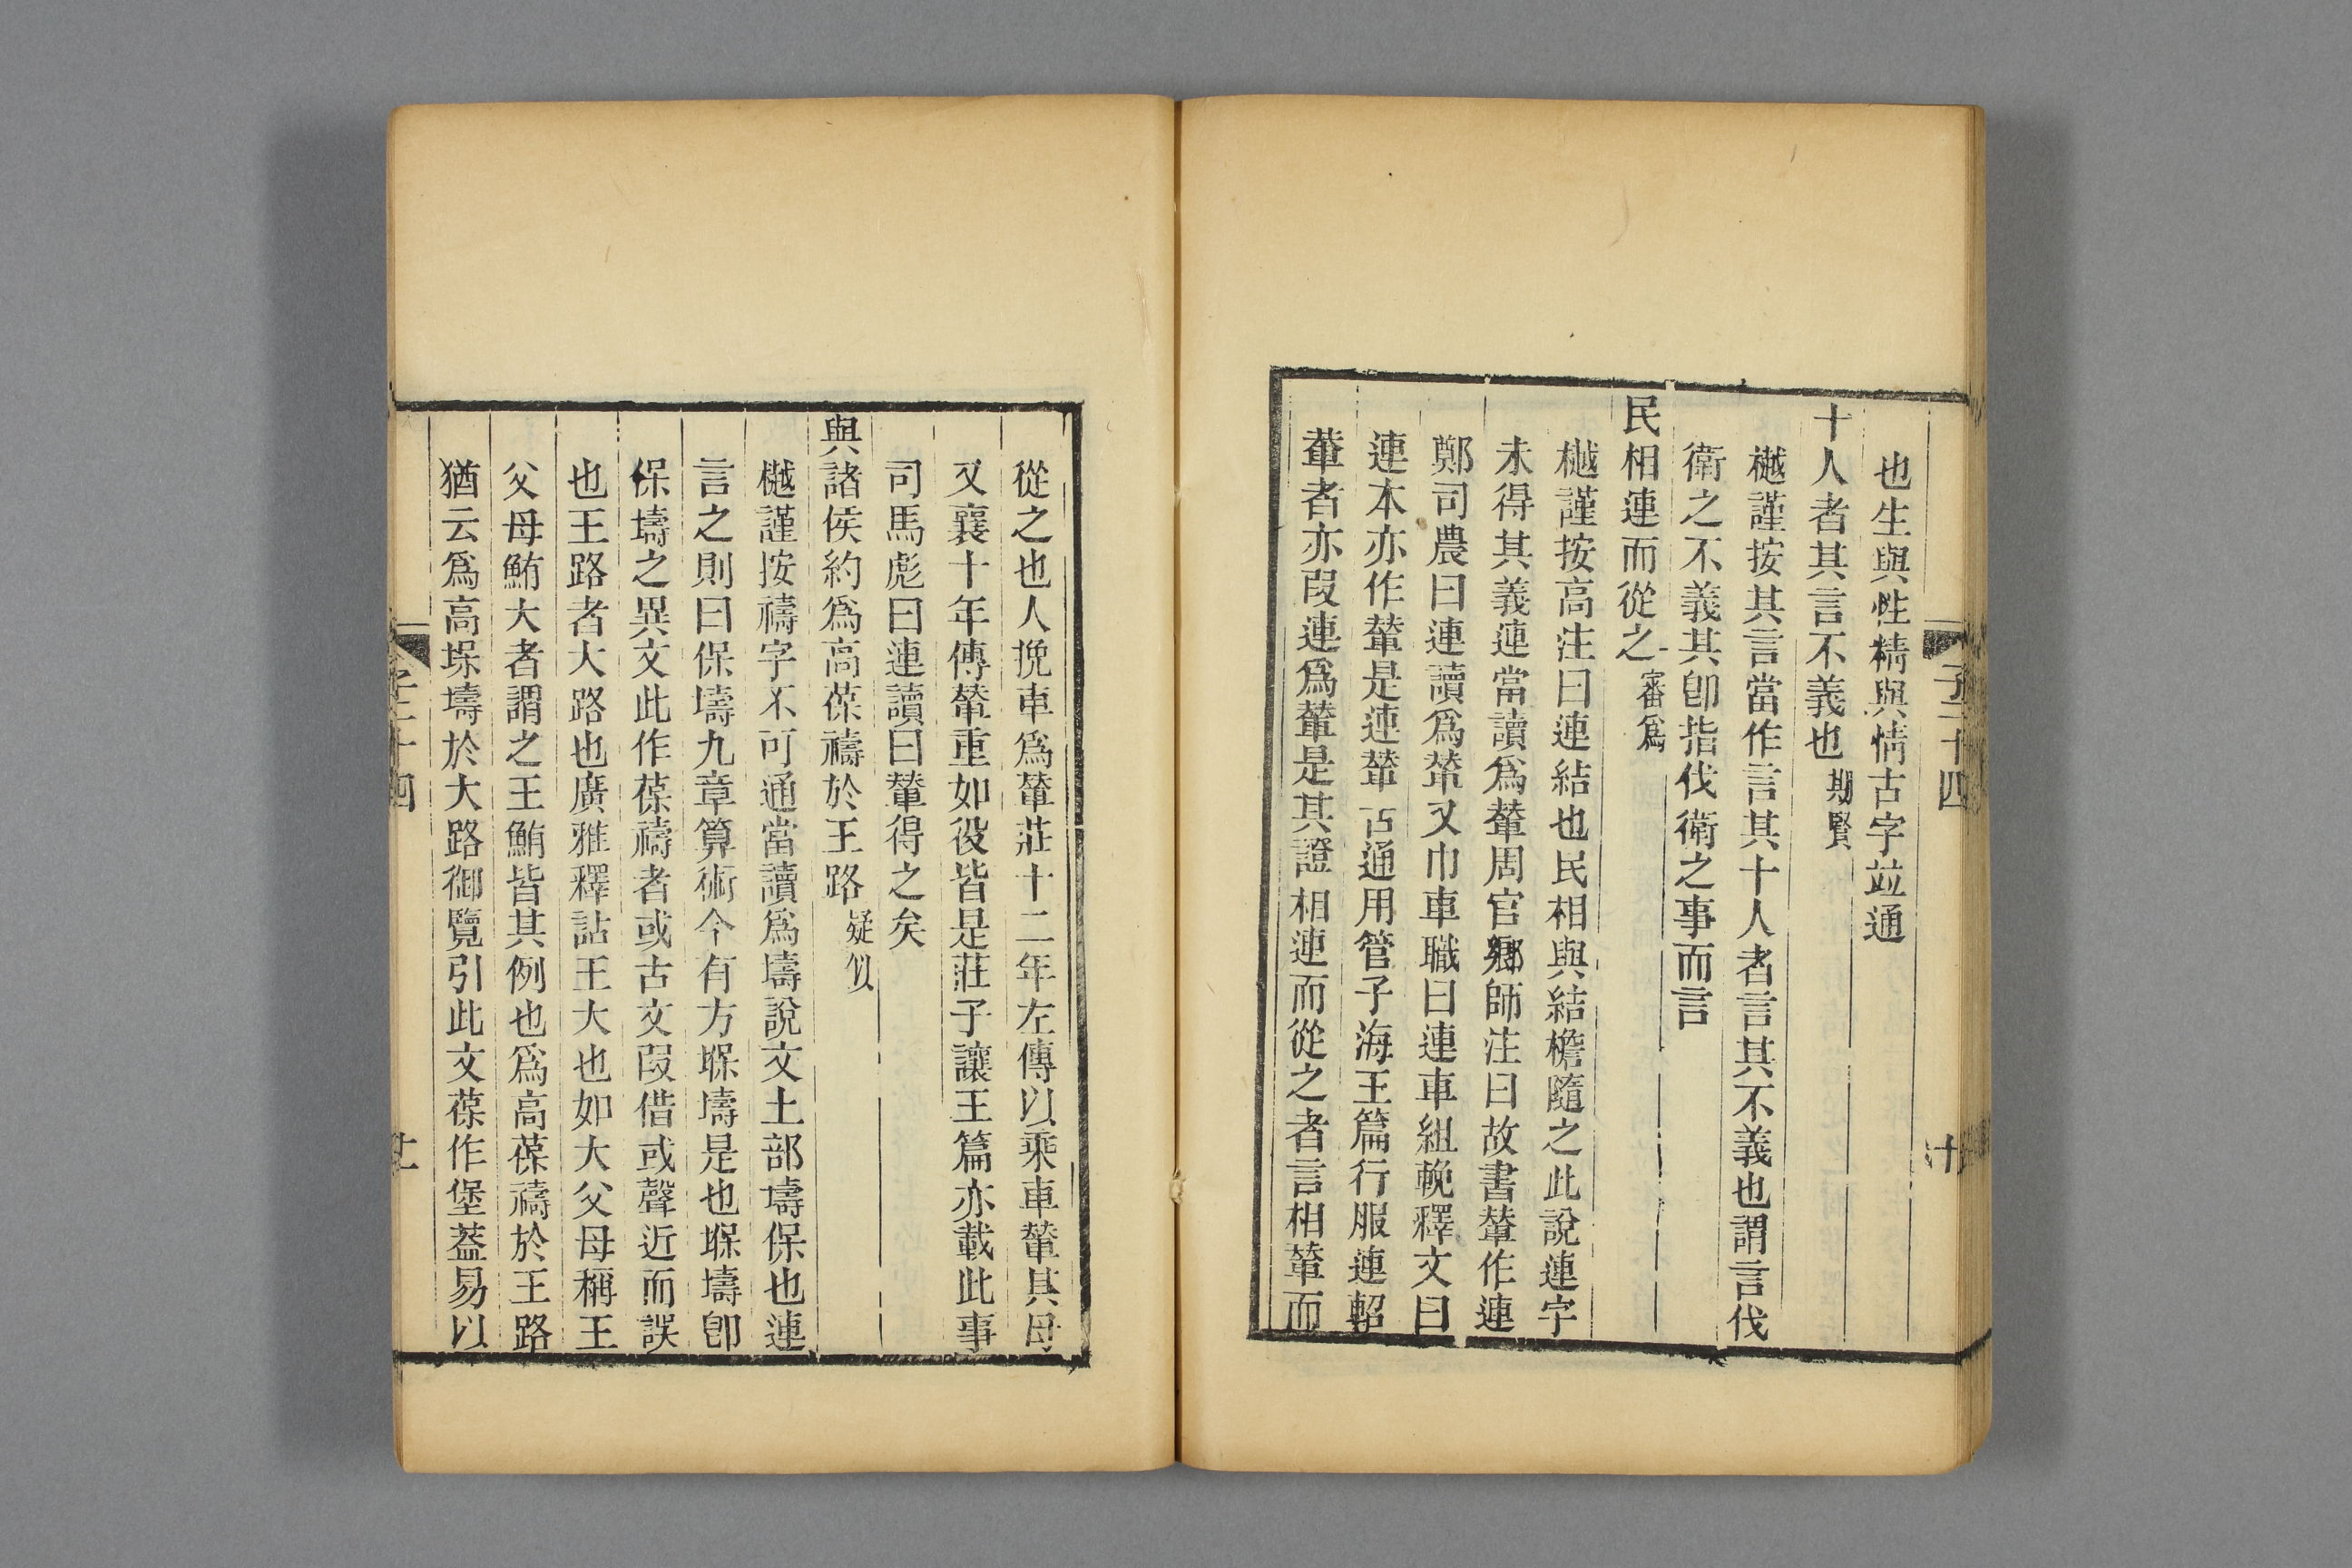 子二十四
十
也生與性精與情古字竝通
十人者其言不義也期賢
樾謹按其言當作言其十人者言其不義也謂言伐
衛之不義其卽指伐衛之事而言
民相連而從之審爲
樾謹按高注曰連結也民相與結檐隨之此說連字
未得其義連當讀爲輦周官鄉師注曰故書輦作連
鄭司農曰連讀爲輦又巾車職曰連車組輓釋文曰
連本亦作輦是連輦古通用管子海王篇行服連軺
輦者亦叚連爲輦是其證相連而從之者言相輦而
從之也人挽車爲輦莊十二年左傳以乘車輦其母
又襄十年傳輦重如役皆是莊子讓王篇亦載此事
司馬彪曰連讀曰輦得之矣
與諸侯約爲高葆禱於王路疑似
樾謹按禱字不可通當讀爲壔說文土部壔保也連
言之則曰保壔九章算術今有方堢壔是也堢壔卽
保壔之異文此作葆禱者或古文叚借或聲近而誤
也王路者大路也廣雅釋詁王大也如大父母稱王
父母鮪大者謂之王鮪皆其例也爲高葆禱於王路
猶云爲高堢壔於大路御覽引此文葆作堡葢易以
子二十四
十一